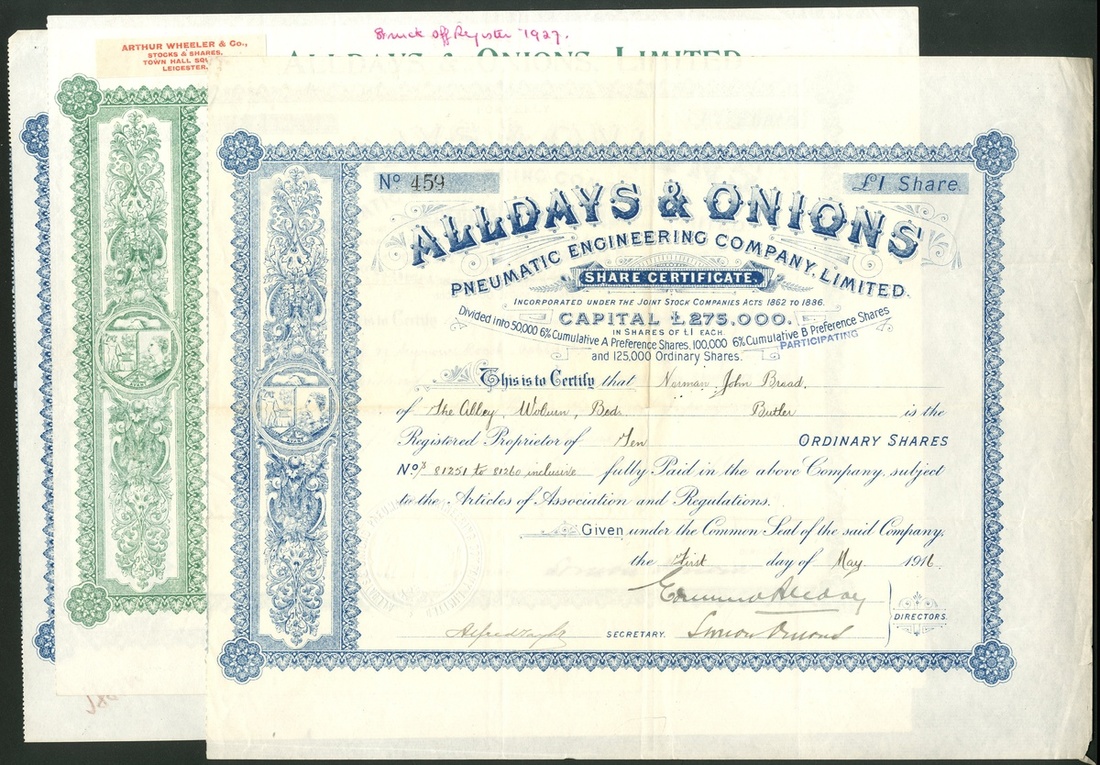 Struck off Register 1927.
ARTHUR WHEELER & Co.,
STOCKS & SHARES,
TOWN HALL
LEICESTER.
ALLDAYS & ONIONS, LIMITED
No 459
£1 Share
ALLDAYS & ONIONS
PNEUMATIC ENGINEERING COMPANY, LIMITED.
SHARE CERTIFICATE.
INCORPORATED UNDER THE JOINT STOCK COMPANIES ACTS 1862 TO 1886.
CAPITAL £275,000.
IN SHARES OF £1 EACH.
Divided into 50,000 6% Cumulative A Preference Shares, 100,000 6% Cumulative B Preference Shares
PARTICIPATING
and 125,000 Ordinary Shares.
This is to Certify that Norman John Broad.
of The Abbey, Woburn, Beds. Butler is the
Registered Proprietor of Ten ORDINARY SHARES
Nos 81251 to 81260 inclusive fully Paid in the above Company, subject
to the Articles of Association and Regulations.
Given under the Common Seal of the said Company,
the First day of May 1916
SECRETARY.
DIRECTORS.